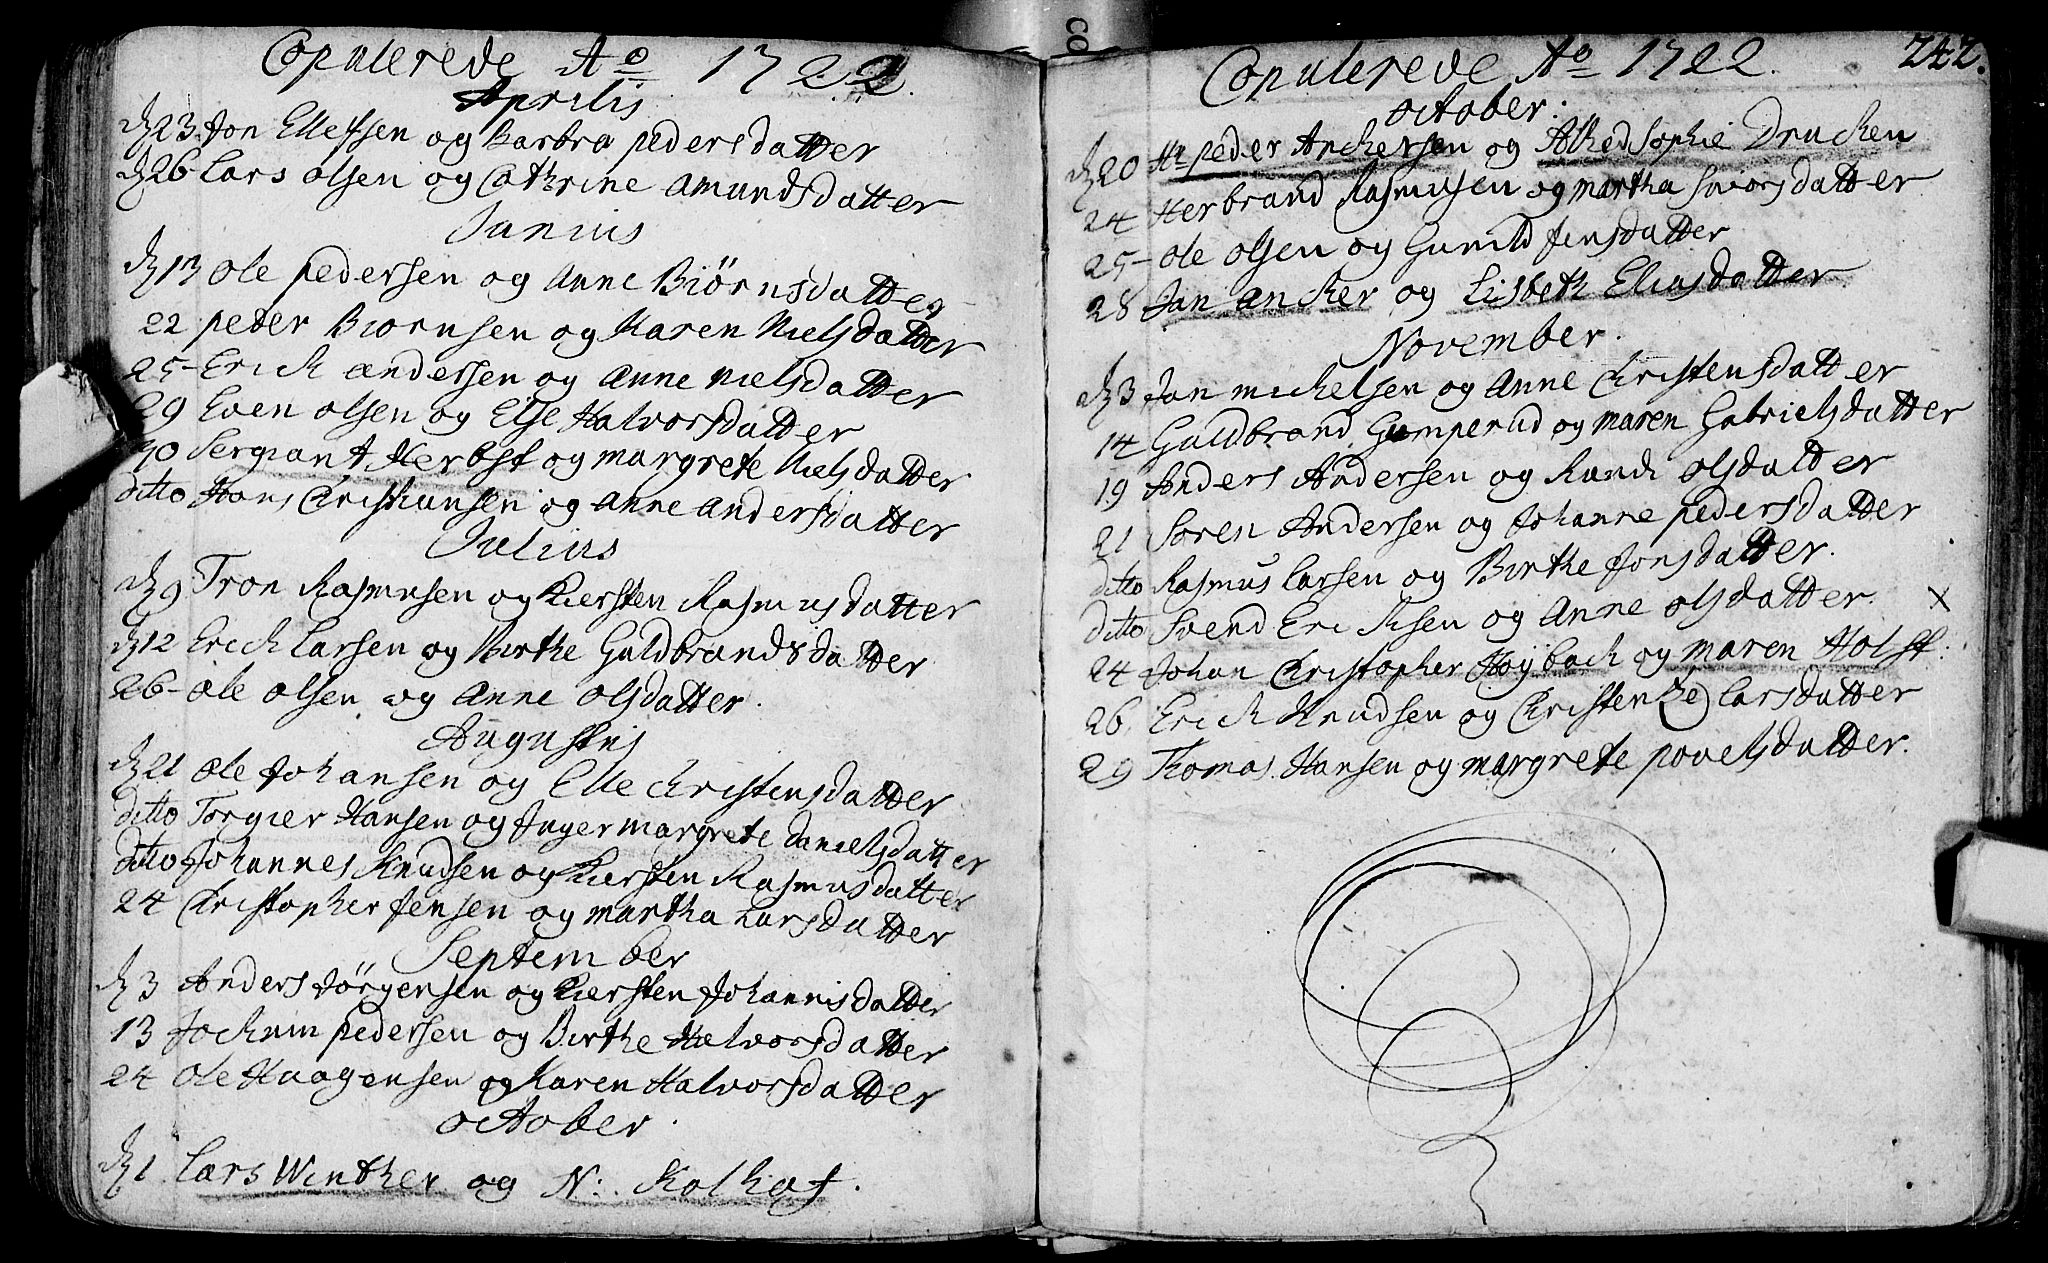 Copulerede Aº 1722.
Aprilis
dn 23 Jon Ellefsen og Barbra pedersdatter
dn 26 Lars olsen og Cathrine Amundsdatter
Junius
dn 13 ole pedersen og Anne Biørnsdatter
22 peder Biørnsen og Karen Nielsdatter
25 Erich andersen og Anne Nielsdatter
29 Even olsen og Else Halvorsdatter
30 Sergiant Herbst og margrete Nielsdatter
ditto Hans Christiansen og Anne Andersdatter
Julius
dn 9 Tron Rasmusen og Kiersten Rasmusdatter
dn 12 Erich Larsen og Birthe Guldbrandsdatter
26 ole olsen og Anne olsdatter.
Augustus
dn 21 ole Johansen og Elle Christensdatter
ditto Torgier Hansen og Inger margrete danielsdatter
ditto Johannes Knudsen og Kiersten Rasmusdatter
24 Christopher Jensen og martha Larsdatter
September
dn 3 Anders Jörgensen og Kiersten Johannisdatter
13 Jochum pedersen og Birthe Halvorsdatter
24 ole Haagensen og Karen Halvorsdatter
october.
dn 1 Lars Winther og N: Kolkaf.
Copulerede Aº 1722. 242.
october:
dn 20 Hr peder Anchersen og Alhed Sophie Drucken
24 Herbrand Rasmusen og martha Siversdatter
25 ole olsen og Gunild Jensdatter
28 Jan ancher og Lisbeth Eliasdatter
November.
dn 3 Jan michelsen og Anne Christensdatter
14 Guldbrand Gumperud og maren Gabrielsdatter
19 Anders Andersen og Randi olsdatter
21 Sören Andersen og Johanne pedersdatter
ditto Rasmus Larsen og Birthe Jonsdatter.
ditto Svend Ericksen og Anne olsdatter. X
24 Johan Christopher Høybach og maren Holst:
26 Erich Knudsen og Christen(ze) Larsdatter
29 Thomas Hansen og margrete povelsdatter.